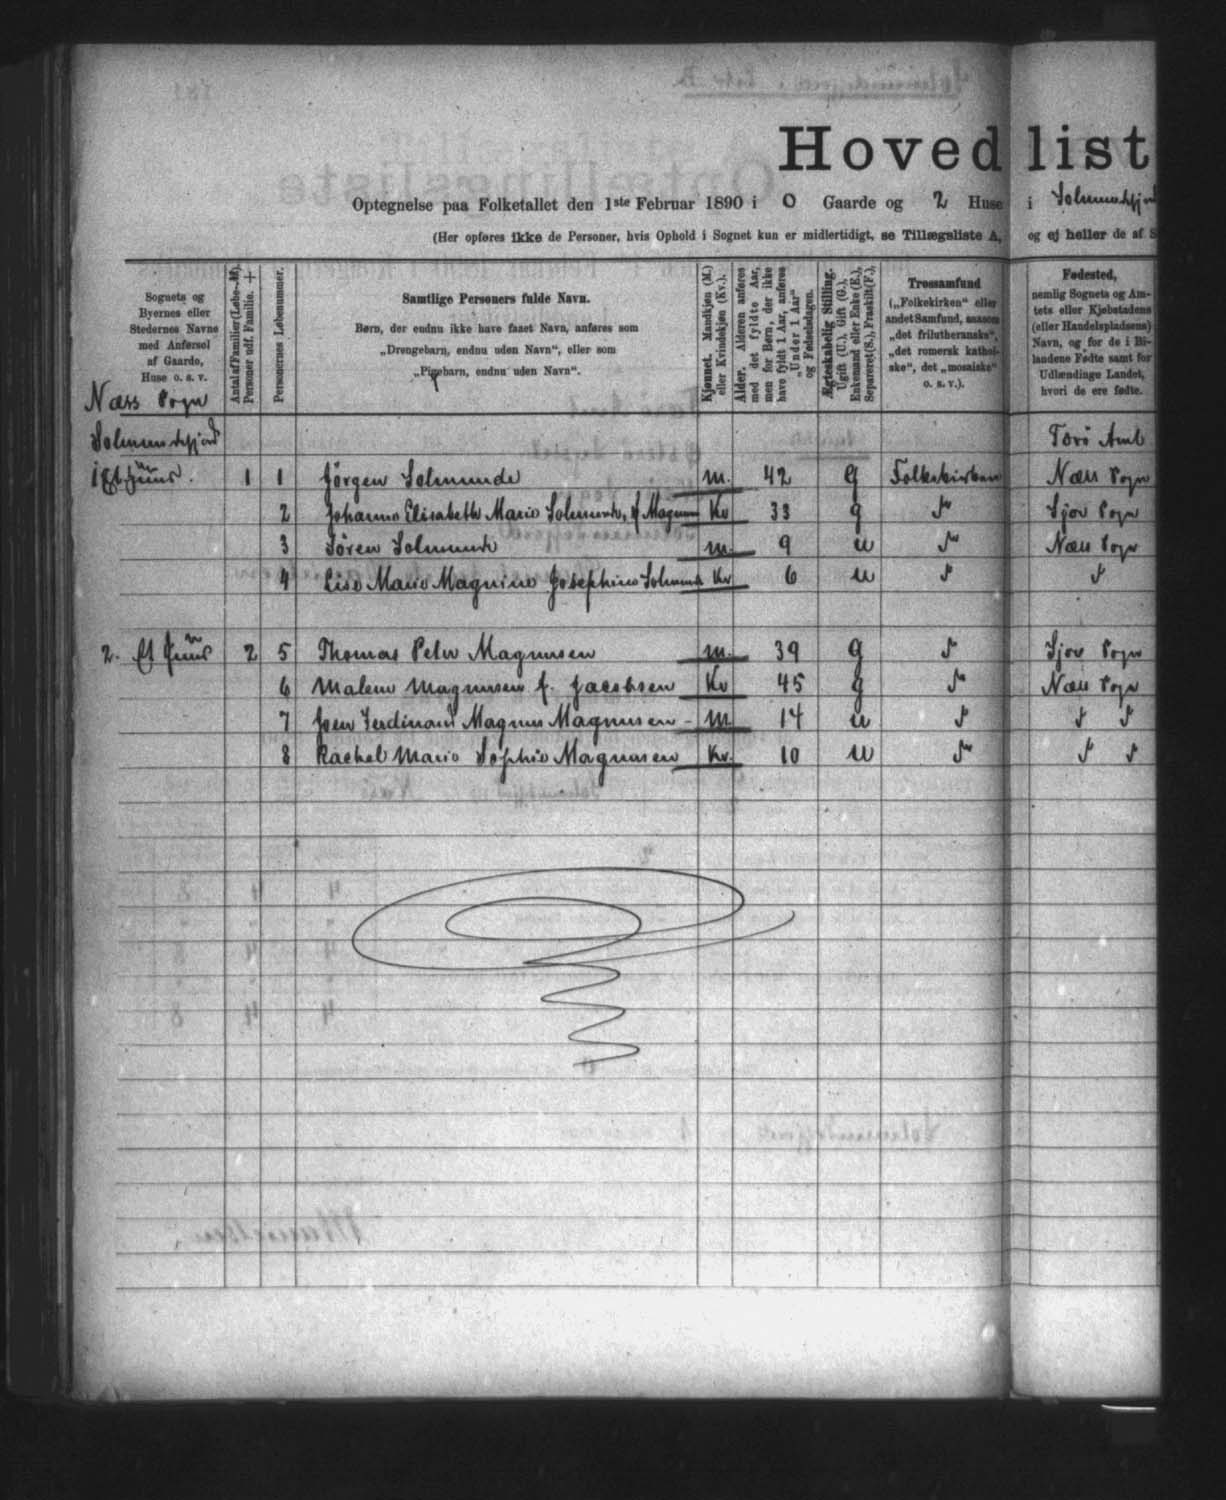 Hovedlist
Optegnelse paa Folketallet den 1ste Februar 1890 i 0 Gaarde og 2 Huse i
(Her opføres ikke de Personer, hvis Ophold i Sognet kun er midlertidigt, se Tillægsliste A, og ej heller de af S
Sognets og
Byernes eller
Stedernes Navne
med Anførsel
af Gaarde,
Huse o. s. v.
Antal af Familier (Løbe-№).
Personer udf. Familie. +
Personernes Løbenummer.
Samtlige Personers fulde Navn.
Børn, der endnu ikke have faaet Navn, anføres som
„Drengebarn, endnu uden Navn“, eller som
„Pigebarn, endnu uden Navn“.
Kjønnet. Mandkjøn (M.)
eller Kvindekjøn (Kv.).
Alder. Alderen anføres
med det fyldte Aar,
men for Børn, der ikke
have fyldt 1 Aar, anføres
„Under 1 Aar“
og Fødselsdagen.
Ægteskabelig Stilling.
Ugift (U.), Gift (G.),
Enkemand eller Enke (E.),
Separeret (S.), Fraskilt (F.).
Trossamfund
(„Folkekirken“ eller
andet Samfund, saasom
„det frilutheranske“,
„det romersk kathol-
ske“, det „mosaiske“
o. s. v.).
Fødested,
nemlig Sognets og Am-
tets eller Kjøbstadens
(eller Handelspladsens)
Navn, og for de i Bi-
landene Fødte samt for
Udlændinge Landet,
hvori de ere fødte.
Næss Sogn
Solmundefjord Færö Amt
1 Et Huus. 1 1 Jörgen Solmunde M. 42 G Folkekirken Næs Sogn
2 Johanne Elisabeth Marie Solmunde, f. Magnusen Kv 33 g Sjov Sogn
3 Sören Solmunde M. 9 u Næs Sogn
4 Lise Marie Magnine Josephine Solmunde Kv 6 u
2. Et Huus 2 5 Thomas Peter Magnusen M. 39 G Sjov Sogn
6 Malene Magnusen f. Jacobsen Kv 45 g Næs Sogn
7 Joen Ferdinand Magnus Magnusen - M. 14 u
8 Rachel Marie Sophie Magnusen Kv. 10 u